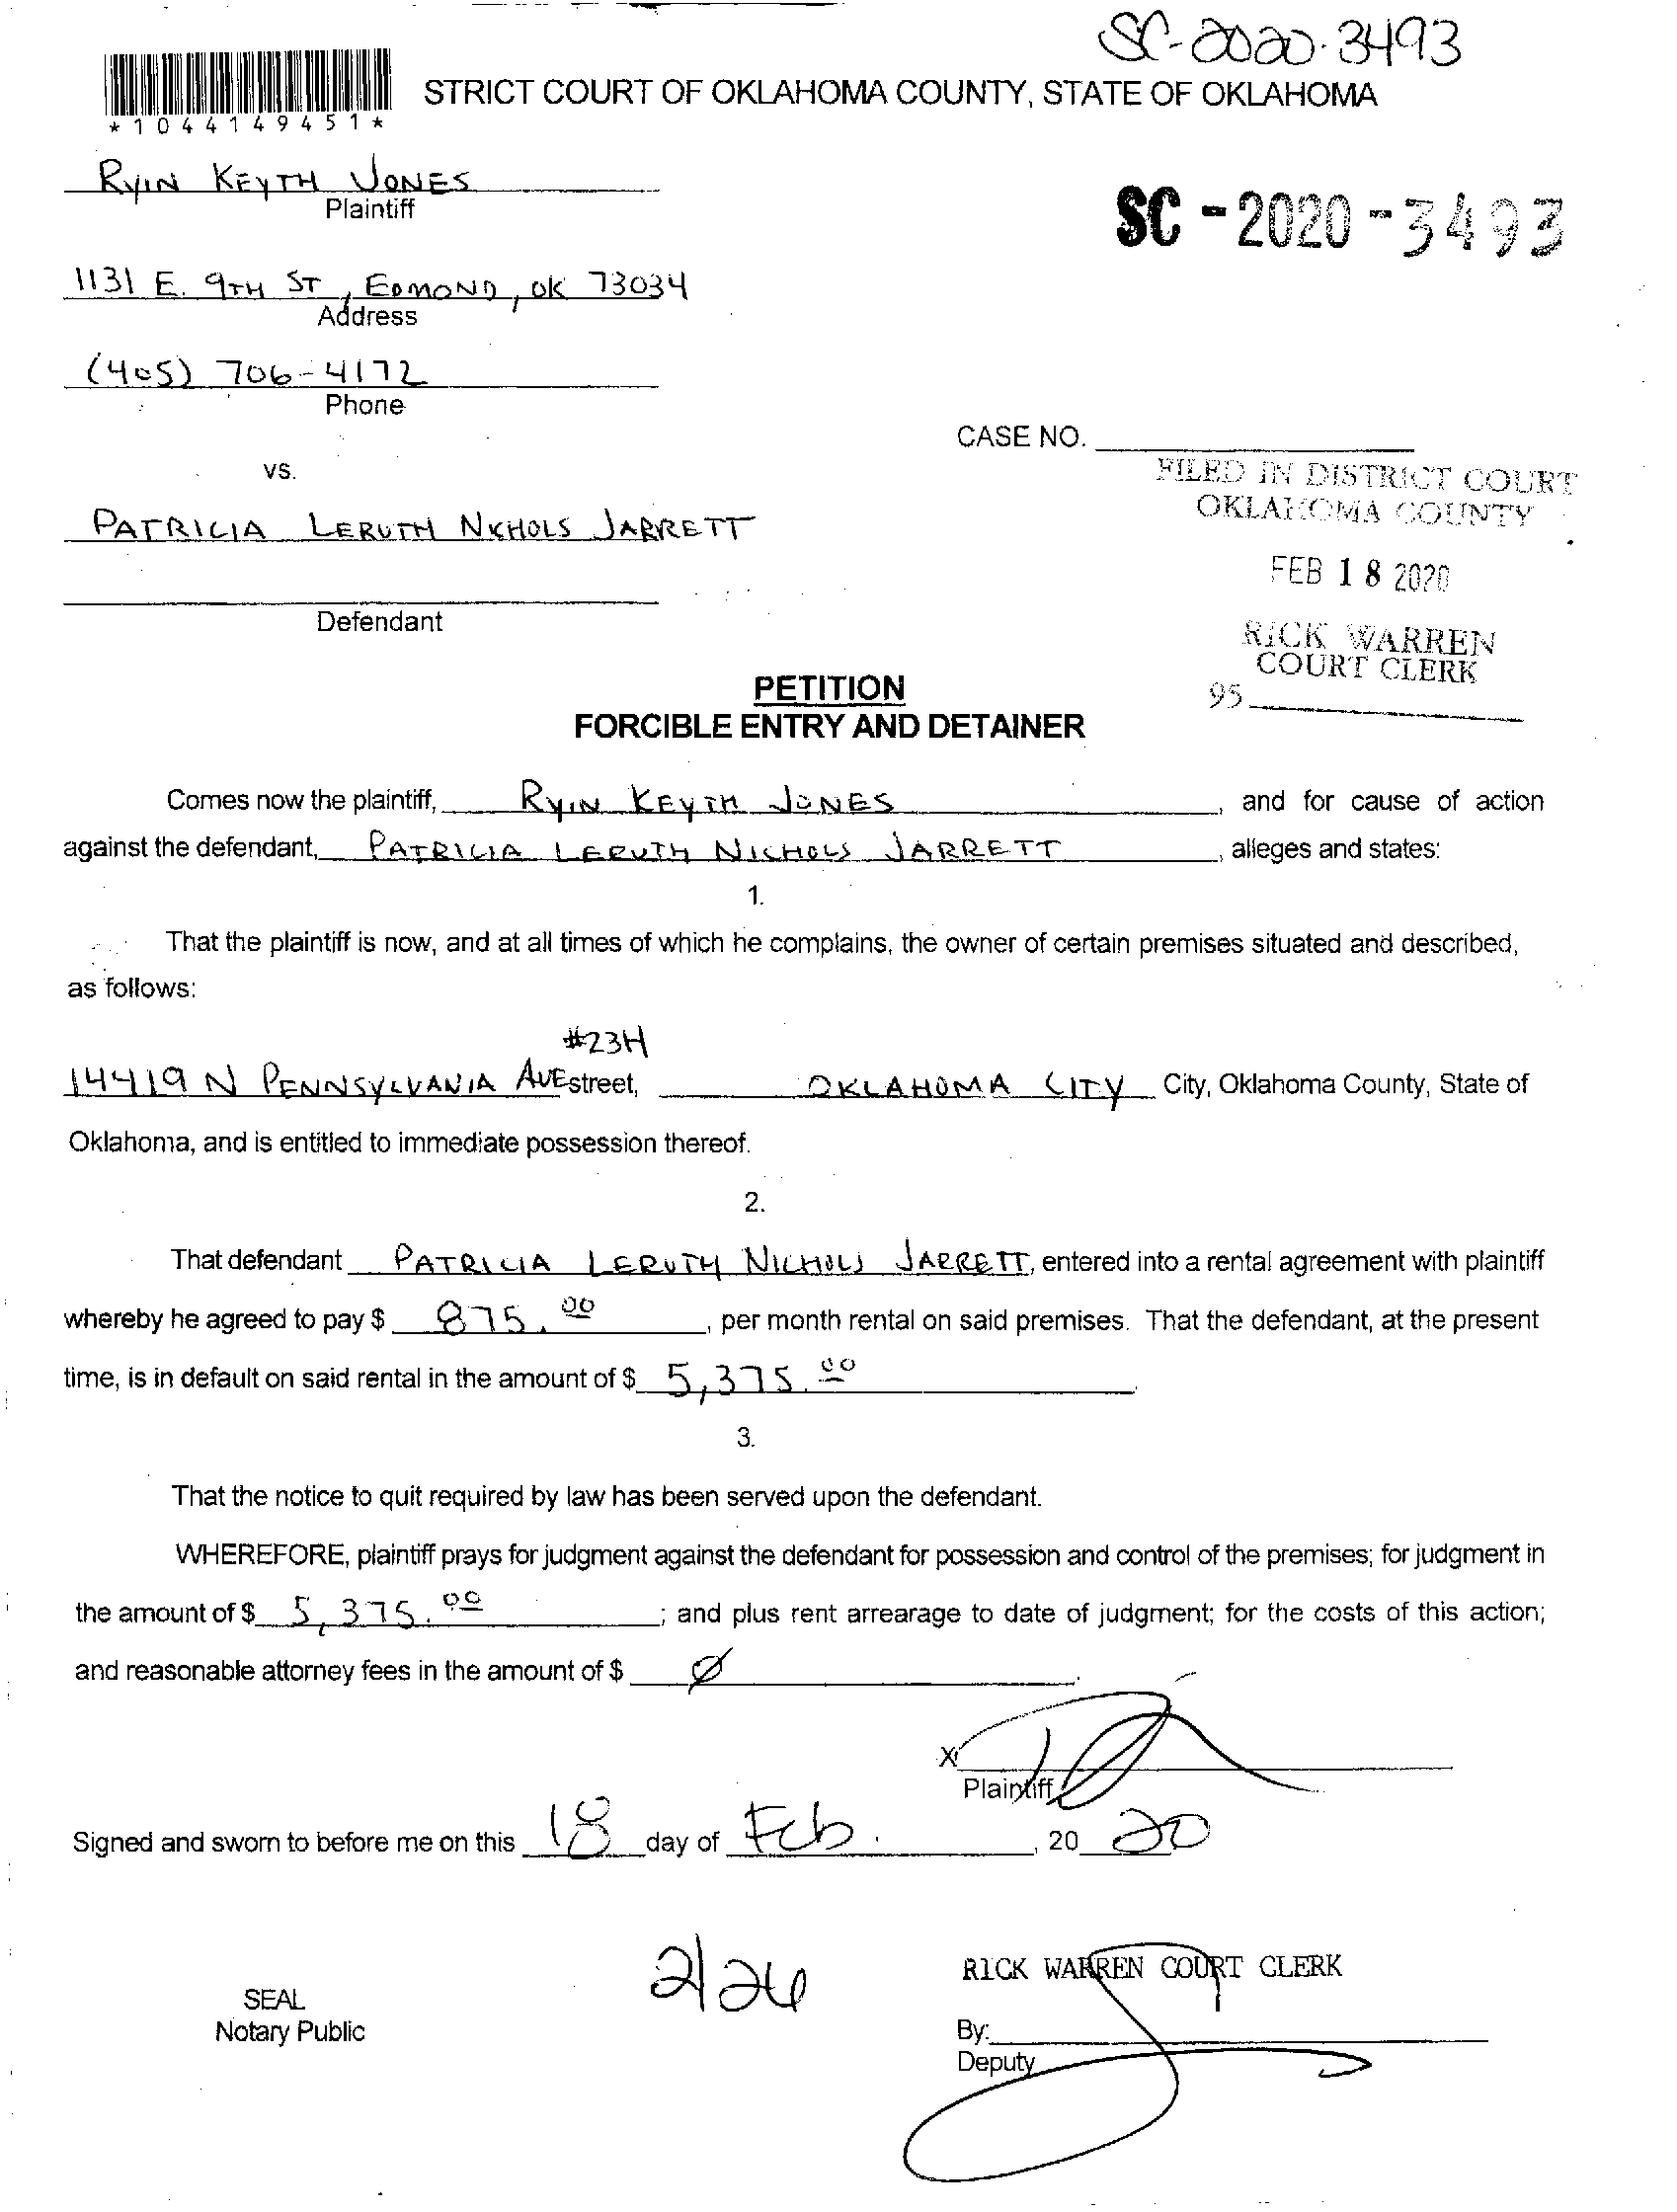 SC-2020-3493
STRICT COURT OF OKLAHOMA COUNTY, STATE OF OKLAHOMA
*1044149451*
RYIN KEYTH JONES
Plaintiff
SC-2020-3493
1131 E. 9TH ST, EDMOND, OK 73034
Address
(405) 706-4172
Phone
CASE NO.
VS.
FILED IN DISTRICT COURT
OKLAHOMA COUNTY
PATRICIA LERUTH NICHOLS JARRETT
FEB 18 2020
Defendant
RICK WARREN
COURT CLERK
95
PETITION
FORCIBLE ENTRY AND DETAINER
Comes now the plaintiff, RYIN KEYTH JONES, and for cause of action
against the defendant, PATRICIA LERUTH NICHOLS JARRETT, alleges and states:
1.
That the plaintiff is now, and at all times of which he complains, the owner of certain premises situated and described,
as follows:
#23H
14419 N PENNSYLVANIA AVE street, OKLAHOMA CITY City, Oklahoma County, State of
Oklahoma, and is entitled to immediate possession thereof.
2.
That defendant PATRICIA LERUTH NICHOLS JARRETT, entered into a rental agreement with plaintiff
whereby he agreed to pay $ 875.00, per month rental on said premises. That the defendant, at the present
time, is in default on said rental in the amount of $ 5,375.00
3.
That the notice to quit required by law has been served upon the defendant.
WHEREFORE, plaintiff prays for judgment against the defendant for possession and control of the premises; for judgment in
the amount of $ 5,375.00; and plus rent arrearage to date of judgment; for the costs of this action;
and reasonable attorney fees in the amount of $ Ø.
X
Plaintiff
Signed and sworn to before me on this 18 day of Feb., 20 20
2/26
RICK WARREN COURT CLERK
SEAL
Notary Public
By:
Deputy